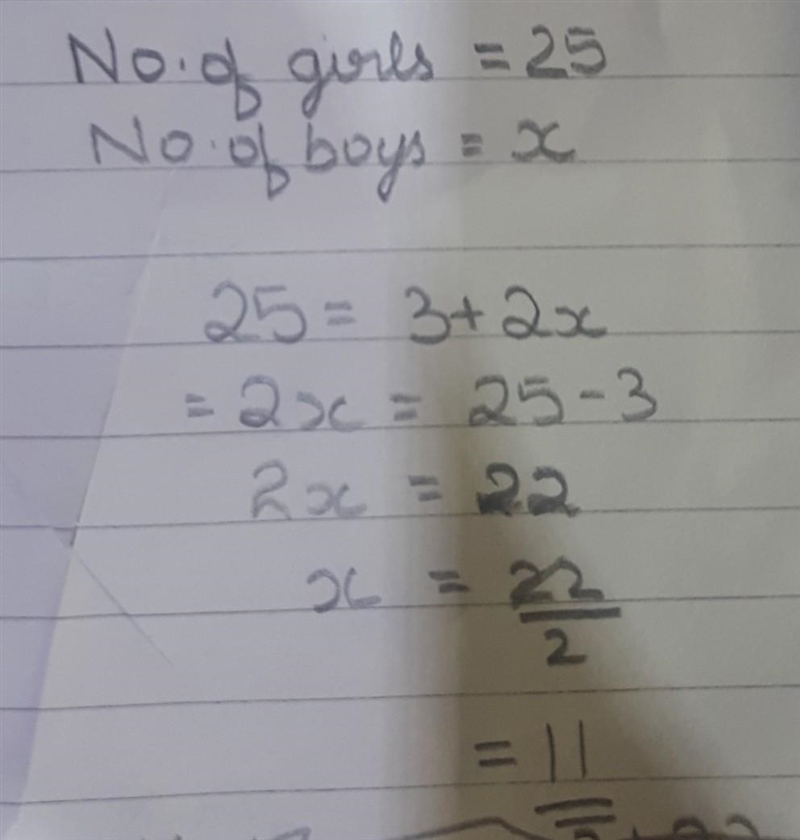 No. of girls = 25
No. of boys = x
25 = 3 + 2x
= 2x = 25 - 3
2x = 22
x = 22/2
= 11